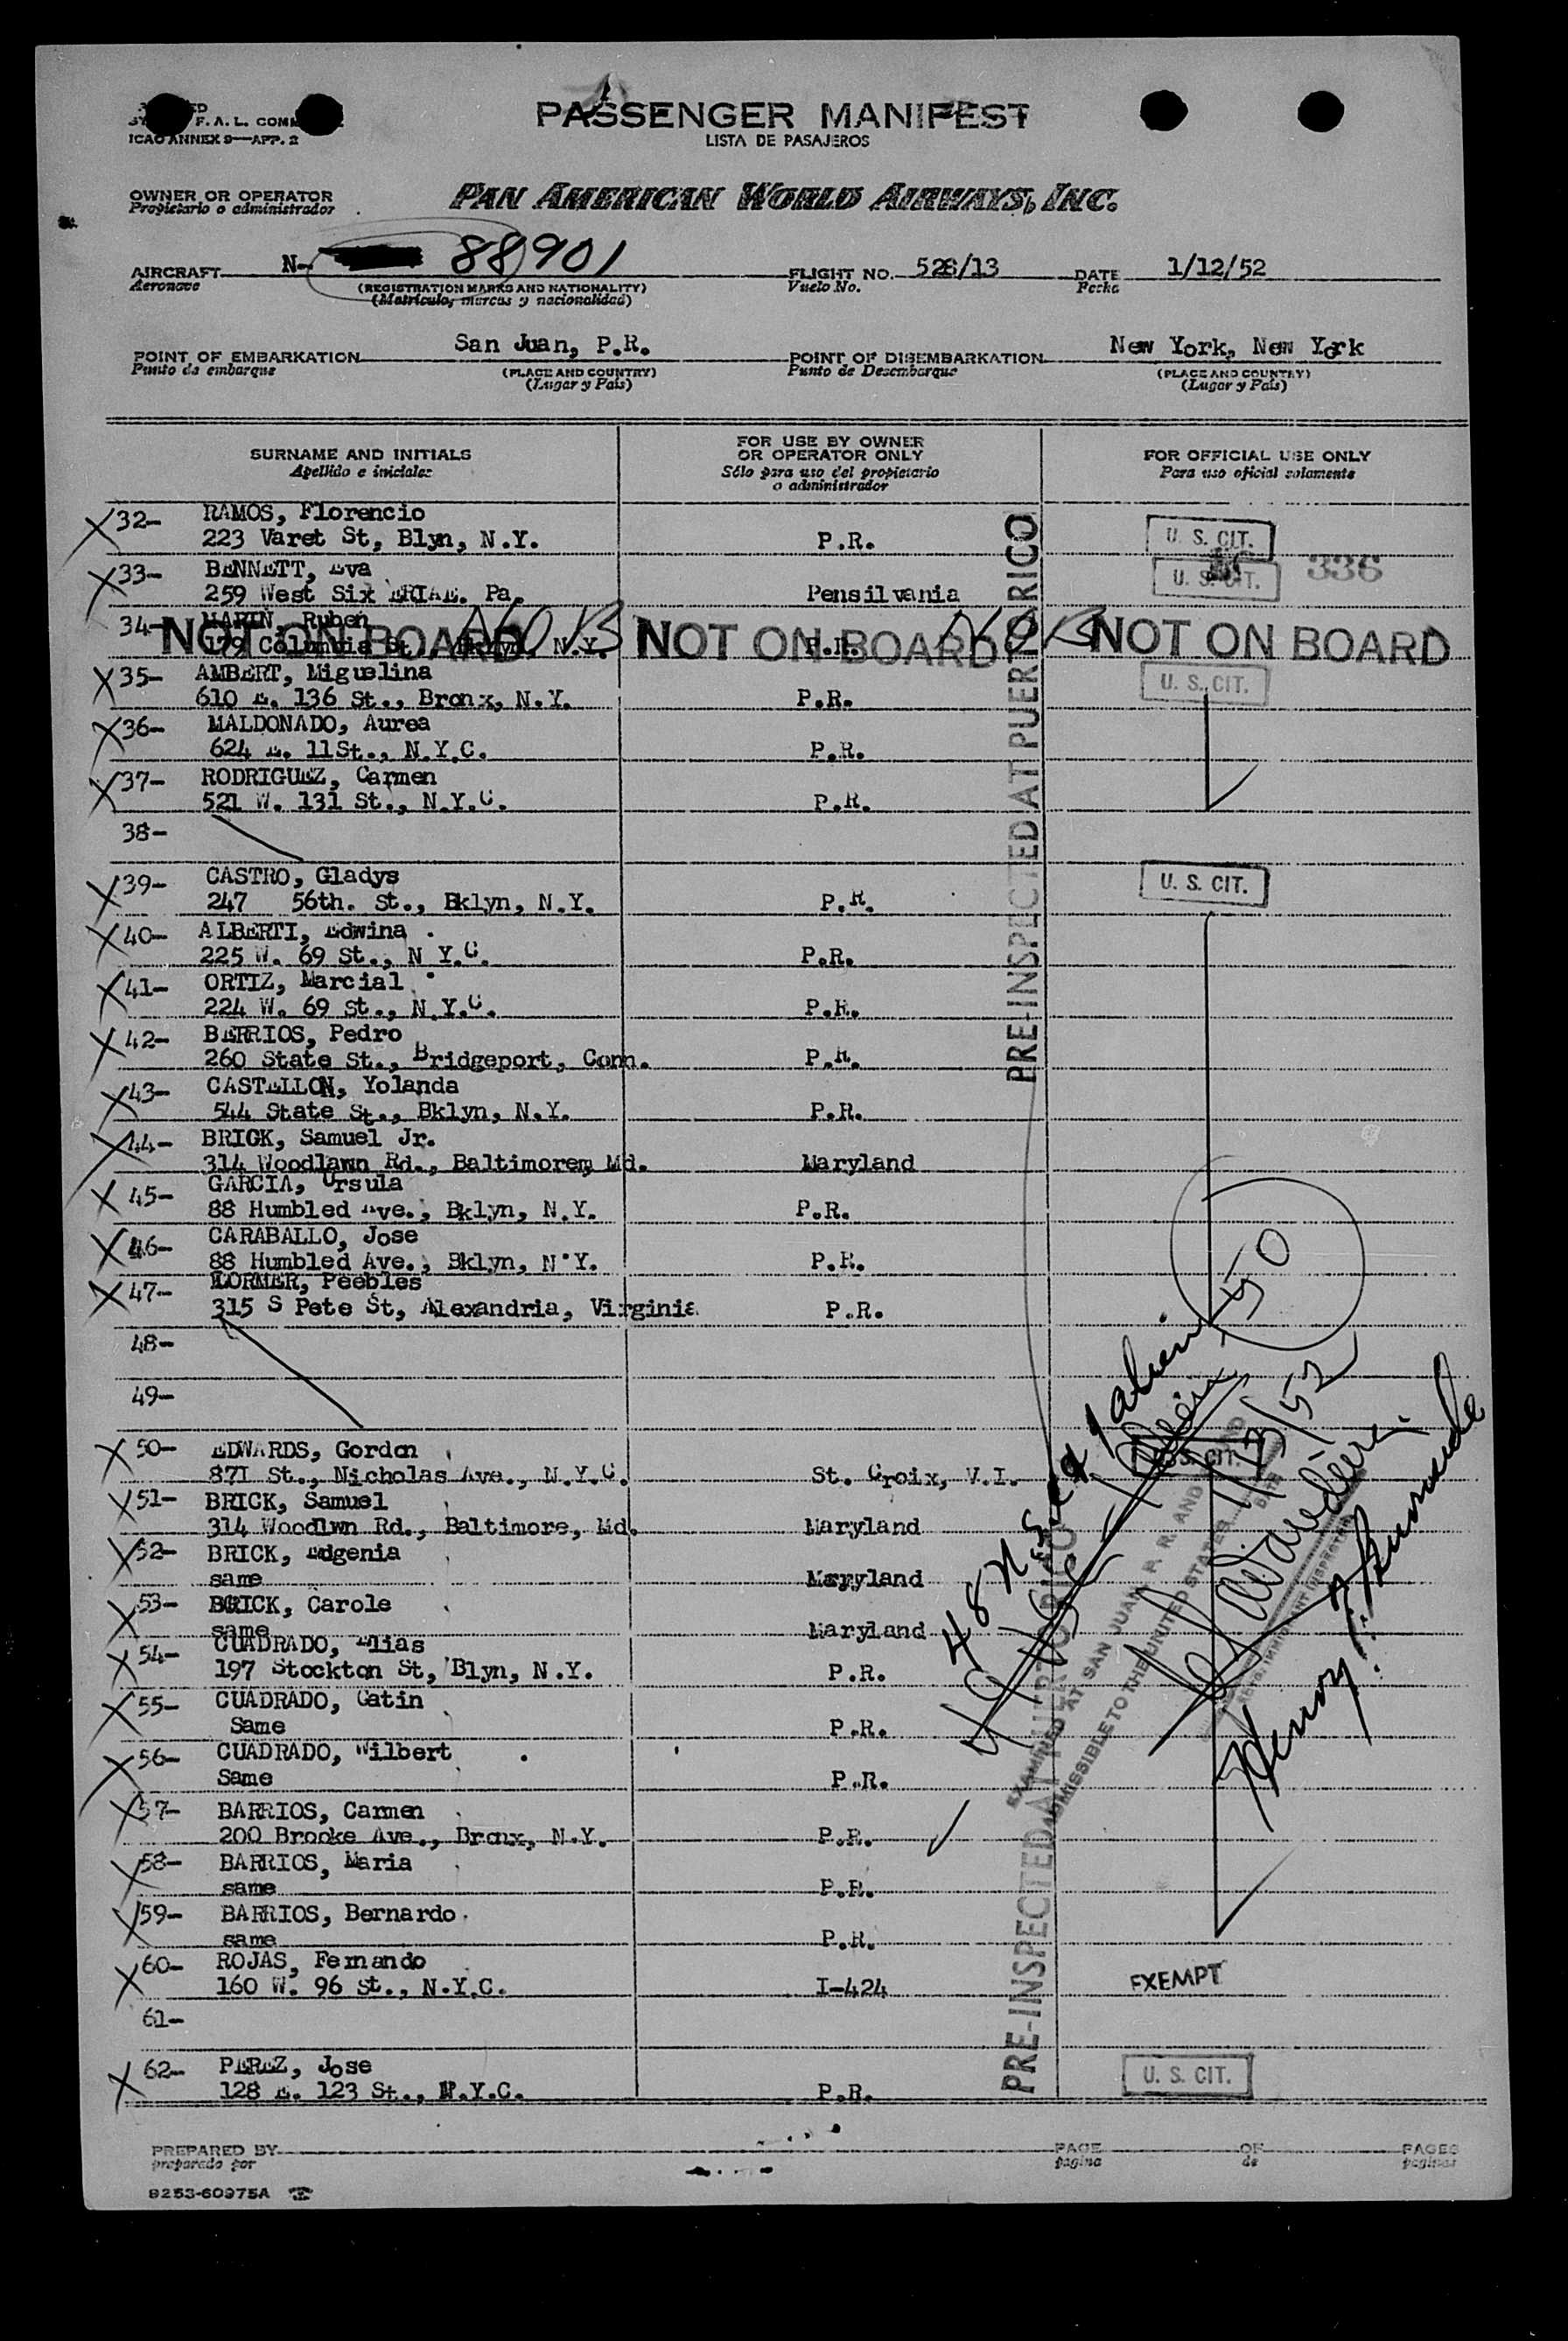 F. A. L. COMM
ICAO ANNEX 9—APP. 2
PASSENGER MANIFEST
LISTA DE PASAJEROS
OWNER OR OPERATOR
Propietario o administrador
PAN AMERICAN WORLD AIRWAYS, INC.
AIRCRAFT N- 88901 FLIGHT NO. 528/13 DATE 1/12/52
Aeronave (REGISTRATION MARKS AND NATIONALITY) Vuelo No. Fecha
(Matricula, marcas y nacionalidad)
POINT OF EMBARKATION San Juan, P.R. POINT OF DISEMBARKATION New York, New York
Punto de embarque (PLACE AND COUNTRY) Punto de Desembarque (PLACE AND COUNTRY)
(Lugar y País) (Lugar y País)
SURNAME AND INITIALS FOR USE BY OWNER OR OPERATOR ONLY FOR OFFICIAL USE ONLY
Apellido e iniciales Sólo para uso del propietario o administrador Para uso oficial solamente
X 32- RAMOS, Florencio
223 Varet St, Blyn, N.Y. P.R. U. S. CIT.
X 33- BENNETT, Eva 336
259 West Six ERIAE. Pa. Pensilvania U. S. CIT.
34- MARIN, Ruben
179 Columbia St., N.Y. P.R.
NOT ON BOARD NOB NOT ON BOARD NOB NOT ON BOARD
X 35- AMBERT, Miguelina U. S. CIT.
610 E. 136 St., Bronx, N.Y. P.R.
X 36- MALDONADO, Aurea
624 E. 11St., N.Y.C. P.R.
X 37- RODRIGUEZ, Carmen
521 W. 131 St., N.Y.C. P.R.
38-
X 39- CASTRO, Gladys U. S. CIT.
247 56th. St., Bklyn, N.Y. P.R.
X 40- ALBERTI, Edwina
225 W. 69 St., N Y.C. P.R.
X 41- ORTIZ, Marcial
224 W. 69 St., N.Y.C. P.R.
X 42- BERRIOS, Pedro
260 State St., Bridgeport, Conn. P.R.
X 43- CASTELLON, Yolanda
544 State St., Bklyn, N.Y. P.R.
X 44- BRICK, Samuel Jr.
314 Woodlawn Rd., Baltimorem, Md. Maryland
X 45- GARCIA, Ursula
88 Humbled Ave., Bklyn, N.Y. P.R.
X 46- CARABALLO, Jose
88 Humbled Ave., Bklyn, N.Y. P.R.
X 47- LORMER, Peebles
315 S Pete St, Alexandria, Virginia P.R.
48-
49-
X 50- EDWARDS, Gordon
871 St., Nicholas Ave., N.Y.C. St. Croix, V.I. U. S. CIT.
X 51- BRICK, Samuel
314 Woodlwn Rd., Baltimore, Md. Maryland
X 52- BRICK, Edgenia
same Maryland
X 53- BRICK, Carole
same Maryland
X 54- CUADRADO, Elias
197 Stockton St, Blyn, N.Y. P.R.
X 55- CUADRADO, Catin
Same P.R.
X 56- CUADRADO, Wilbert
Same P.R.
X 57- BARRIOS, Carmen
200 Brooke Ave., Bronx, N.Y. P.R.
X 58- BARRIOS, Maria
same P.R.
X 59- BARRIOS, Bernardo
same P.R.
X 60- ROJAS, Fernando
160 W. 96 St., N.Y.C. I-424 EXEMPT
61-
X 62- PEREZ, Jose
128 E. 123 St., N.Y.C. P.R. U. S. CIT.
PRE-INSPECTED AT PUERTO RICO
PRE-INSPECTED AT PUERTO RICO
48 N. S. C. & 1 alien 50
EXAMINED AT SAN JUAN, P. R. AND
ADMISSIBLE TO THE UNITED STATES
1/13/52
DATE
IMMIGRANT INSPECTOR
Henry
PREPARED BY PAGE OF PAGES
preparado por página de páginas
9253-60975A